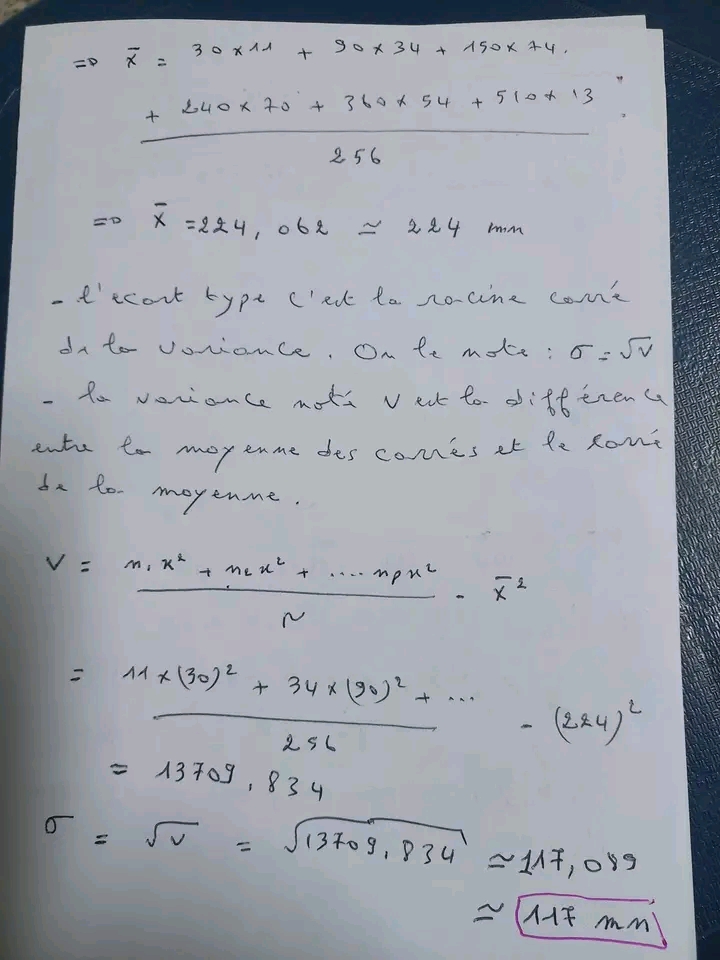 => x̄ = 30 x 11 + 90 x 34 + 150 x 74.
+ 240 x 70 + 360 x 54 + 510 x 13
256
=> x̄ = 224, 062 ≃ 224 mm
- l'ecart type c'est la racine carré
de la variance. On le note : σ = √v
- la variance noté V est la différence
entre la moyenne des carrés et le carré
de la moyenne.
V = n₁x² + n₂x² + .... npx² - x̄²
N
= 11 x (30)² + 34 x (90)² + ... - (224)²
256
= 13709, 834
σ = √v = √13709, 834 ≃ 117, 089
≃ 117 mn